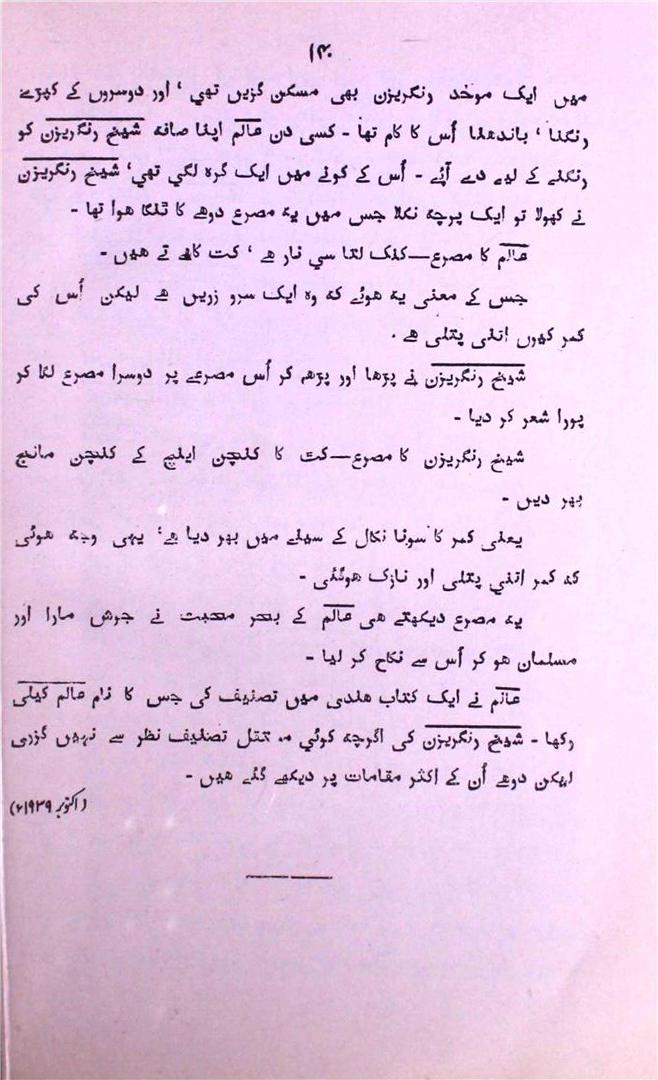 ۱۴۰
میں ایک موحد رنگریزن بھی مسکن گزیں تھی ' اور دوسروں کے کپڑے
رنگنا ' باندھنا اُس کا کام تھا - کسی دن عالم اپنا صافہ شیخ رنگریزن کو
رنگنے کے لیے دے آئے - اُس کے کونے میں ایک گرہ لگی تھی' شیخ رنگریزن
نے کھولا تو ایک پرچہ نکلا جس میں یہ مصرع دوھے کا ٹنگا ھوا تھا -
عالم کا مصرع—کنک لتا سی نار ھے ' کت کاھے تے ھیں -
جس کے معنی یہ ھوئے کہ وہ ایک سرو زریں ھے لیکن اُس کی
کمر کیوں اتنی پتلی ھے .
شیخ رنگریزن نے پڑھا اور پڑھ کر اُس مصرعے پر دوسرا مصرع لگا کر
پورا شعر کر دیا -
شیخ رنگریزن کا مصرع—کت کا کنچن اینچ کے کنچن مانہج
بھر دیں -
یعنی کمر کا سونا نکال کے سینے میں بھر دیا ھے' یہی وجہ ھوئی
کہ کمر اتنی پتلی اور نازک ھوگئی -
یہ مصرع دیکھتے ھی عالم کے بحر محبت نے جوش مارا اور
مسلمان ھو کر اُس سے نکاح کر لیا -
عالم نے ایک کتاب ھندی میں تصنیف کی جس کا نام عالم کیلی
رکھا - شیخ رنگریزن کی اگرچہ کوئی تصنیف نظر سے نہیں گزری
لیکن دوھے اُن کے اکثر مقامات پر دیکھے گئے ھیں -
(اکتوبر ۱۹۳۹ء)